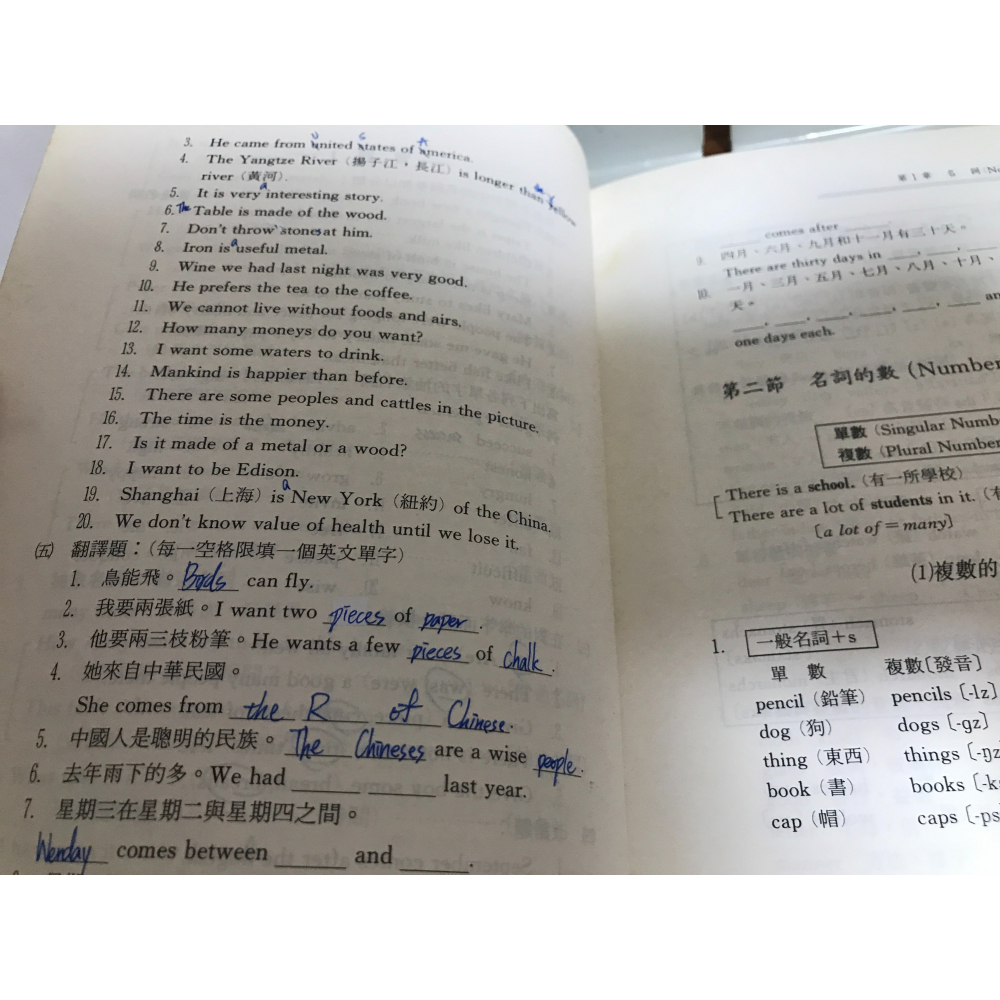 3. He came from United States of America.
4. The Yangtze River (揚子江，長江) is longer than Yellow
river (黃河).
5. It is very a interesting story.
6. The Table is made of the wood.
7. Don't throw stones at him.
8. Iron is a useful metal.
9. Wine we had last night was very good.
10. He prefers the tea to the coffee.
11. We cannot live without foods and airs.
12. How many moneys do you want?
13. I want some waters to drink.
14. Mankind is happier than before.
15. There are some peoples and cattles in the picture.
16. The time is the money.
17. Is it made of a metal or a wood?
18. I want to be Edison.
19. Shanghai (上海) is a New York (紐約) of the China.
20. We don't know value of health until we lose it.
㈤ 翻譯題：(每一空格限填一個英文單字)
1. 鳥能飛。Birds can fly.
2. 我要兩張紙。I want two pieces of paper.
3. 他要兩三枝粉筆。He wants a few pieces of chalk.
4. 她來自中華民國。
She comes from the R of Chinese.
5. 中國人是聰明的民族。The Chineses are a wise people.
6. 去年雨下的多。We had ______ last year.
7. 星期三在星期二與星期四之間。
Wenday comes between ______ and ______.
第1章 名 詞
____ comes after ____
9. 四月、六月、九月和十一月有三十天。
There are thirty days in ____, ____,
10. 一月、三月、五月、七月、八月、十月、
天。
____, ____, ____, ____, ____, ____ an
one days each.
第二節 名詞的數 (Number
單數 (Singular Numb
複數 (Plural Number
There is a school. (有一所學校)
There are a lot of students in it. (
〔a lot of = many〕
(1)複數的
1. 一般名詞+s
單 數 複數〔發音〕
pencil (鉛筆) pencils〔-lz〕
dog (狗) dogs〔-gz〕
thing (東西) things〔-ŋz
book (書) books〔-k
cap (帽) caps〔-ps